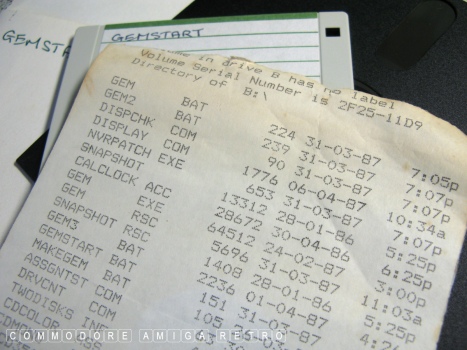 GEMSTART
GEMSTA
Volume in drive B has no label
Volume Serial Number is 2F25-11D9
Directory of B:\
GEM BAT 224 31-03-87 7:05p
GEM2 BAT 239 31-03-87 7:07p
DISPCHK COM 90 31-03-87 7:07p
DISPLAY COM 1776 06-04-87 10:34a
NVRPATCH EXE 653 31-03-87 7:07p
SNAPSHOT 13312 28-01-86 5:25p
CALCLOCK ACC 28672 30-04-86 6:25p
GEM EXE 64512 24-02-87 3:00p
GEM RSC 5696 31-03-87 11:03a
SNAPSHOT RSC 1408 28-01-86 5:25p
GEM3 BAT 2236 01-04-87
GEMSTART BAT 151 31-03-87
MAKEGEM BAT 105
ASSGNTST COM
DRVCNT
TWODISKS
CDCOLOR
COMMODORE AMIGA RETRO